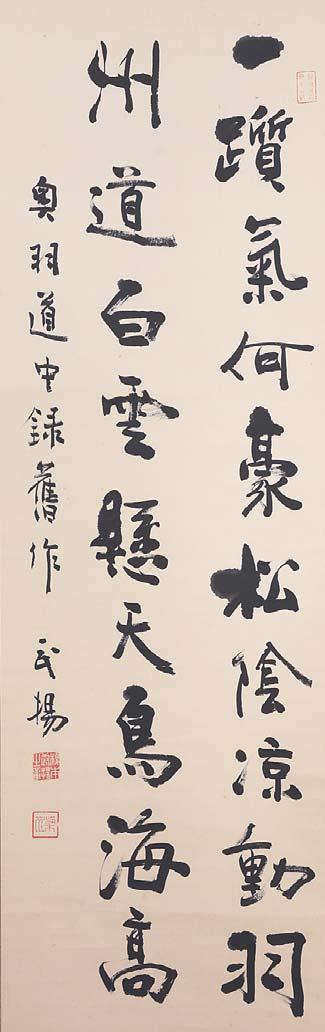 一躓氣何豪松陰凉動羽
州道白雲懸天鳥海高
奥羽道中録舊作 民揚